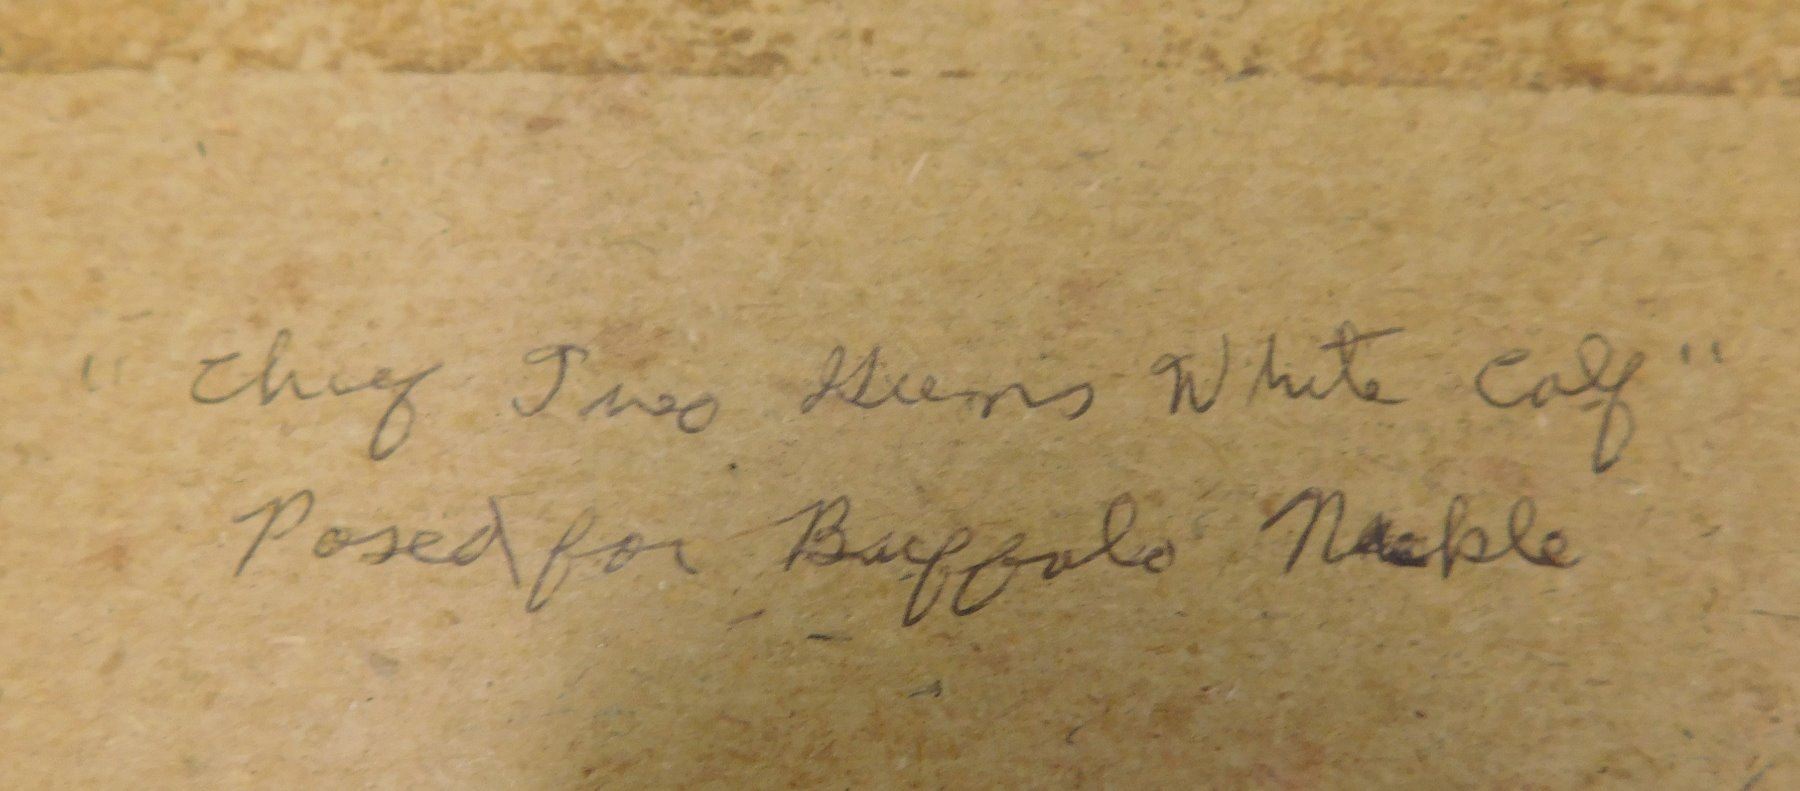 "Chief Two Guns White Calf"
Posed for Buffalo Nickle